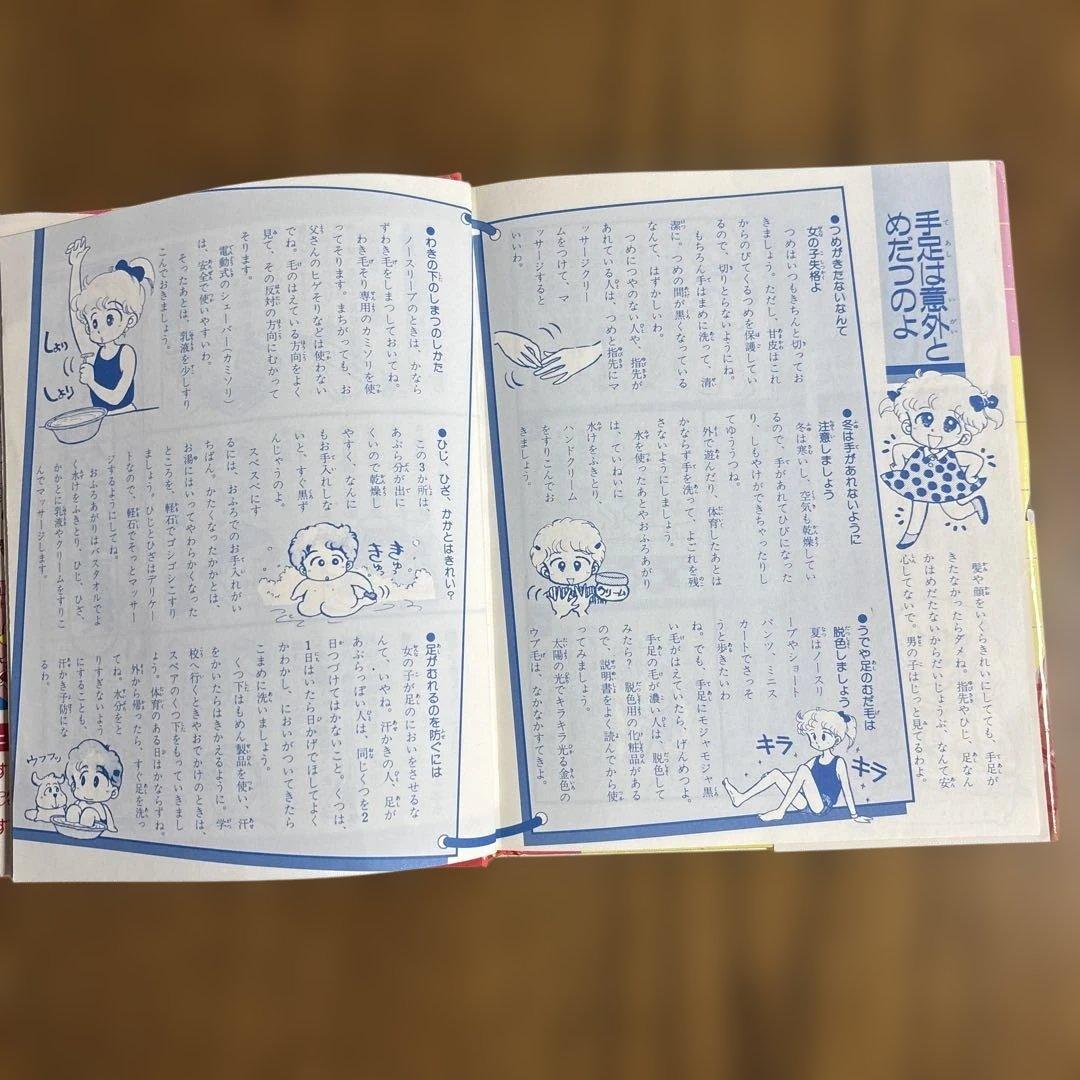 手足は意外と
めだつのよ
髪や顔をいくらきれいにしてても、手足が
きたなかったらダメね。指先やひじ、足なん
かはめだたないからだいじょうぶ、なんて安
心してないで。男の子はじっと見てるわよ。
●つめがきたないなんて
女の子失格よ
つめはいつもきちんと切ってお
きましょう。ただし、甘皮はこれ
からのびてくるつめを保護してい
るので、切りとらないようにね。
もちろん手はまめに洗って、清
潔に。つめの間が黒くなっている
なんて、はずかしいわ。
つめにつやのない人や、指先が
あれている人は、つめと指先にマ
ッサージクリー
ムをつけて、マ
ッサージすると
いいわ。
●冬は手があれないように
注意しましょう
冬は寒いし、空気も乾燥してい
るので、手があれてひびになった
り、しもやけができちゃったりし
てゆううつね。
外で遊んだり、体育したあとは
かならず手を洗って、よごれを残
さないようにしましょう。
水を使ったあとやおふろあがり
は、ていねいに
水けをふきとり、
ハンドクリーム
をすりこんでお
きましょう。
クリーム
●うでや足のむだ毛は
脱色しましょう
夏はノースリ
ーブやショート
パンツ、ミニス
カートでさっそ
うと歩きたいわ
ね。でも、手足にモジャモジャ黒
い毛がはえていたら、げんめつよ。
手足の毛が濃い人は、脱色して
みたら? 脱色用の化粧品がある
ので、説明書をよく読んでから使
ってみましょう。
太陽の光でキラキラ光る金色の
ウブ毛は、なかなかすてきよ。
キラ
キラ
●わきの下のしまつのしかた
ノースリーブのときは、かなら
ずわき毛をしまつしておいてね。
わき毛そり専用のカミソリを使
ってそります。まちがっても、お
父さんのヒゲそりなどは使わない
でね。毛のはえている方向をよく
見て、その反対の方向にむかって
そります。
電動式のシェーバー(カミソリ)
は、安全で使いやすいわ。
そったあとは、乳液を少しすり
こんでおきましょう。
しょり
しょり
●ひじ、ひざ、かかとはきれい?
この3か所は、
あぶら分が出に
くいので乾燥し
やすく、なんに
もお手入れしな
いと、すぐ黒ず
んじゃうのよ。
スベスベにす
るには、おふろでのお手入れがい
ちばん。かたくなったかかとは、
お湯にはいってやわらかくなった
ところを、軽石でゴシゴシこすり
ましょう。ひじとひざはデリケー
トなので、軽石でそっとマッサー
ジするようにしてね。
おふろあがりはバスタオルでよ
く水けをふきとり、ひじ、ひざ、
かかとに乳液やクリームをすりこ
んでマッサージします。
きゅっ
きゅっ
●足がむれるのを防ぐには
女の子が足のにおいをさせるな
んて、いやね。汗かきの人、足が
あぶらっぽい人は、同じくつを2
日つづけてはかないこと。くつは、
1日はいたら日かげでほしてよく
かわかし、においがついてきたら
こまめに洗いましょう。
くつ下はもめん製品を使い、汗
をかいたらはきかえるように。学
校へ行くときやおでかけのときは、
スペアのくつ下をもっていきまし
ょう。体育のある日はかならずね。
外から帰ったら、すぐ足を洗っ
てね。水分をと
りすぎないよう
にすることも、
汗かき予防にな
るわ。
ウフフッ